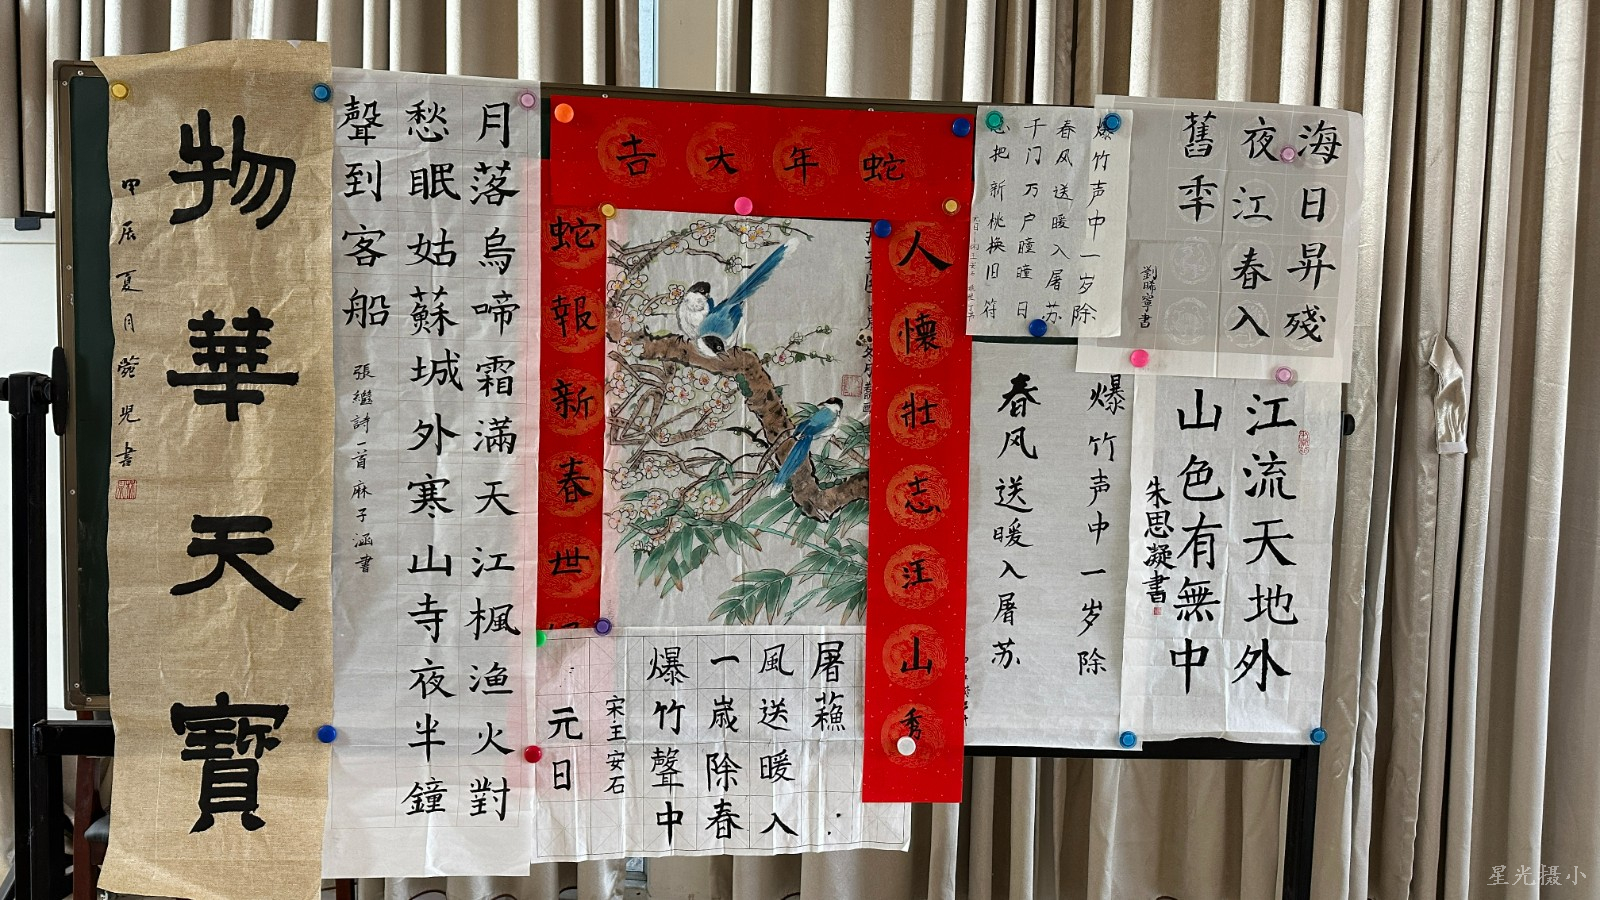 物華天寶
甲辰夏月
兒書
月落烏啼霜滿天江楓漁火對
愁眠姑蘇城外寒山寺夜半鐘
聲到客船
張繼詩一首麻子涵書
蛇年大吉
人懷壯志汪山秀
蛇報新春世
屠蘓
風送暖入
一歲除春
爆竹聲中
宋王安石
元日
爆竹声中一岁除
春风送暖入屠苏
千门万户曈曈日
总把新桃换旧符
爆竹声中一岁除
春风送暖入屠苏
海日昇殘
夜江春入
舊年
劉晞寧書
江流天地外
山色有無中
朱思凝書
星光摄小